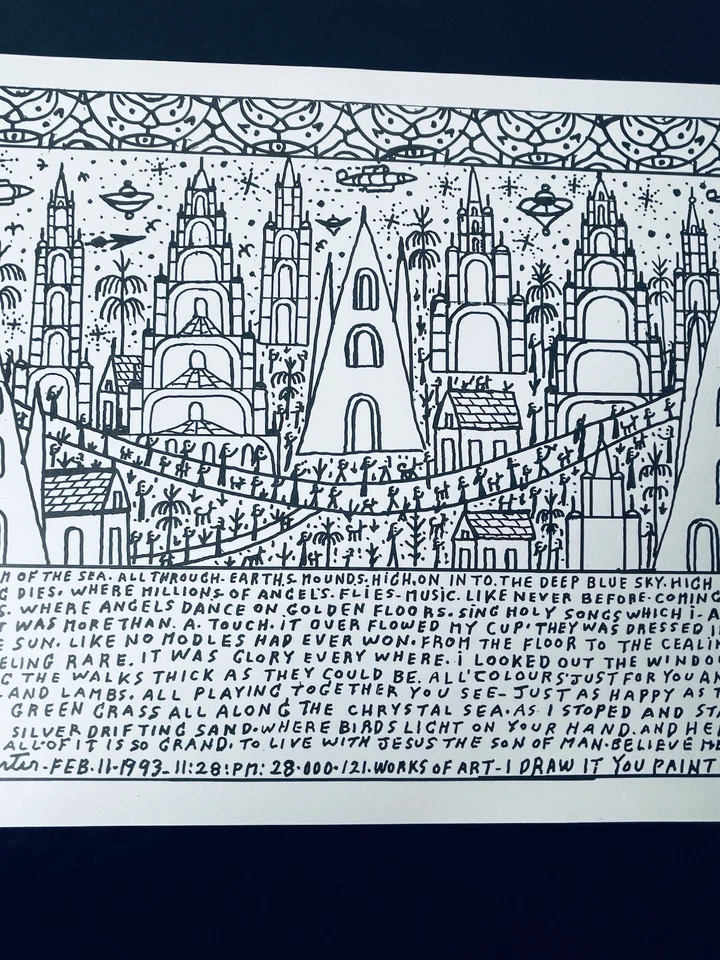 M OF THE SEA. ALL THROUGH. EARTH,S. MOUNDS. HIGH. ON IN TO. THE DEEP BLUE SKY. HIGH
G DIES. WHERE MILLIONS OF ANGEL'S. FLIES- MUSIC. LIKE NEVER BEFORE. COMING
S. WHERE ANGELS DANCE ON GOLDEN FLOORS. SING HOLY SONGS WHICH i. A
T WAS MORE THAN. A. TOUCH. IT OVER FLOWED MY CUP. THEY WAS DRESSED I
E SUN. LIKE NO MODLES HAD EVER WON. FROM THE FLOOR TO THE CEALIN
ELING RARE. IT WAS GLORY EVERY WHERE. i LOOKED OUT THE WINDO
G THE WALKS THICK AS THEY COULD BE. ALL COLOURS JUST FOR YOU AN
LAND LAMBS. ALL PLAYING TOGETHER YOU SEE- JUST AS HAPPY AS T
GREEN GRASS ALL ALONG THE CHRYSTAL SEA. AS I STOPED AND STA
SILVER DRIFTING SAND. WHERE BIRDS LIGHT ON YOUR HAND. AND HE
ALL. OF IT IS SO GRAND. TO LIVE WITH JESUS THE SON OF MAN. BELIEVE ME
nter - FEB. 11 - 1993 - 11:28: PM: 28.000.121. WORKS OF ART - I DRAW IT YOU PAINT